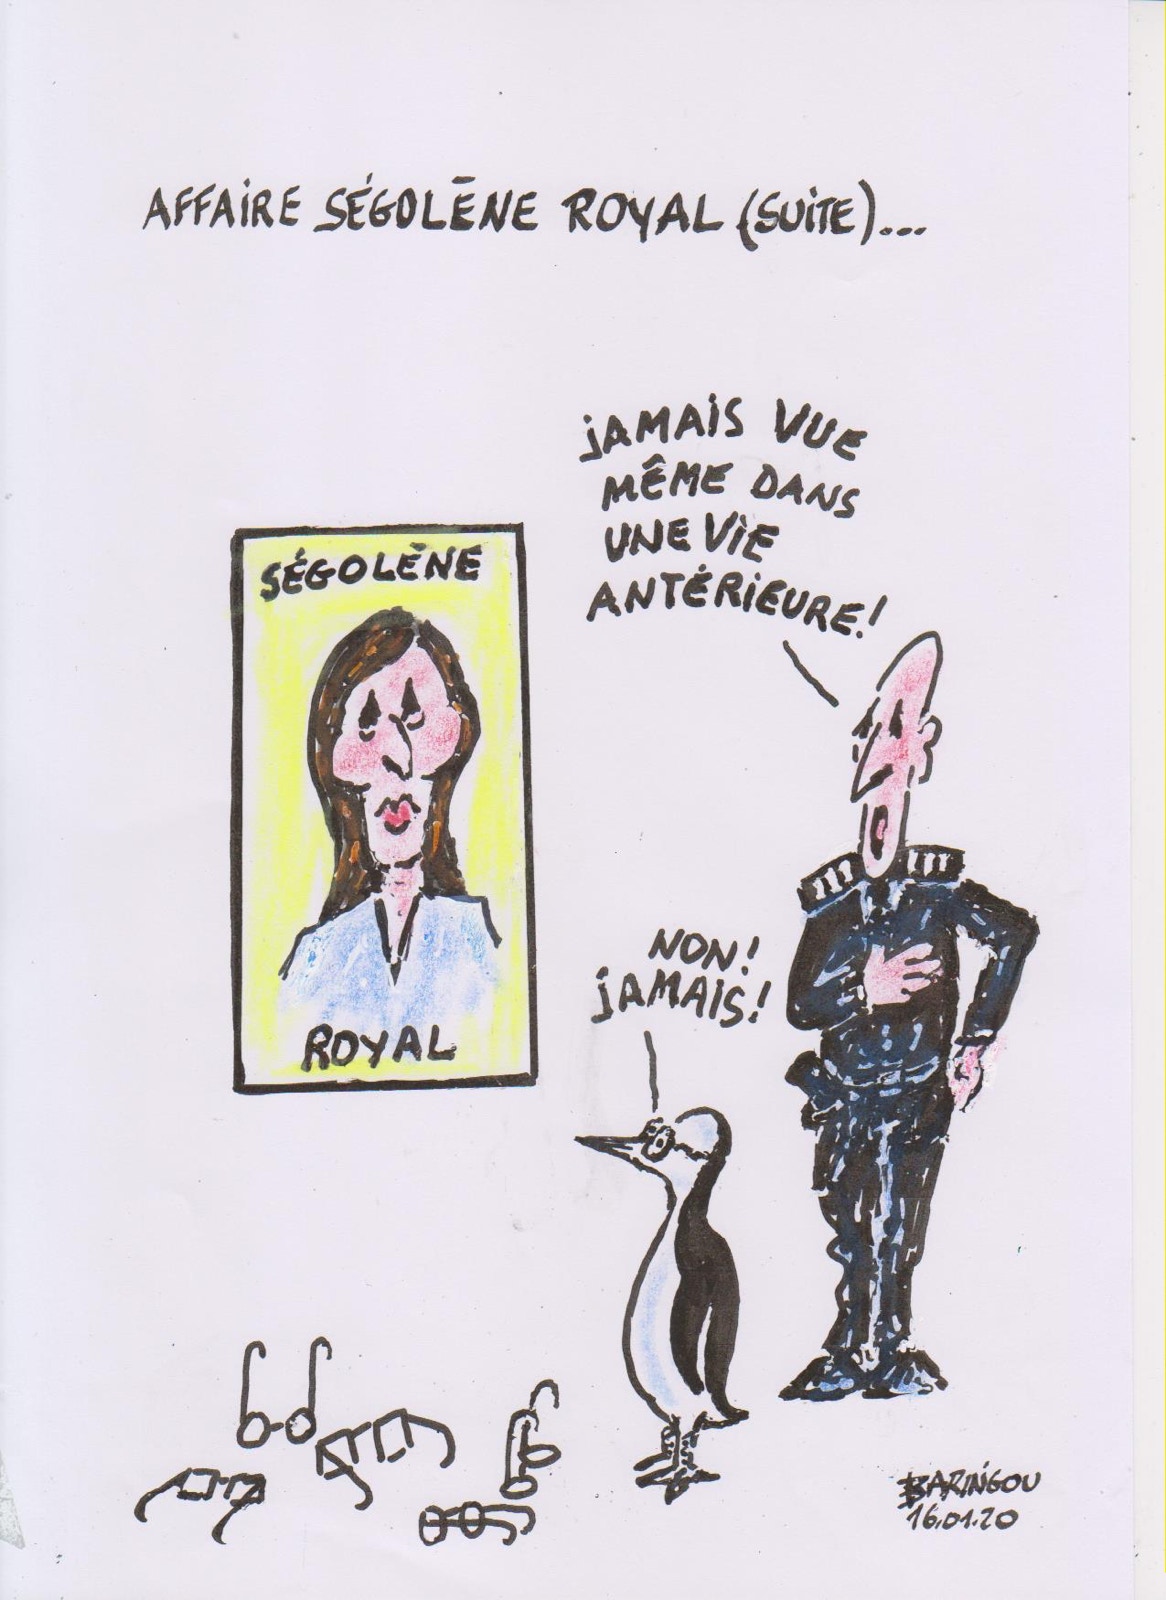 AFFAIRE SÉGOLĒNE ROYAL (SUITE)...
JAMAIS VUE
MÊME DANS
UNE VIE
ANTÉRIEURE!
SÉGOLĒNE
ROYAL
NON!
JAMAIS!
BARINGOU
16.01.20